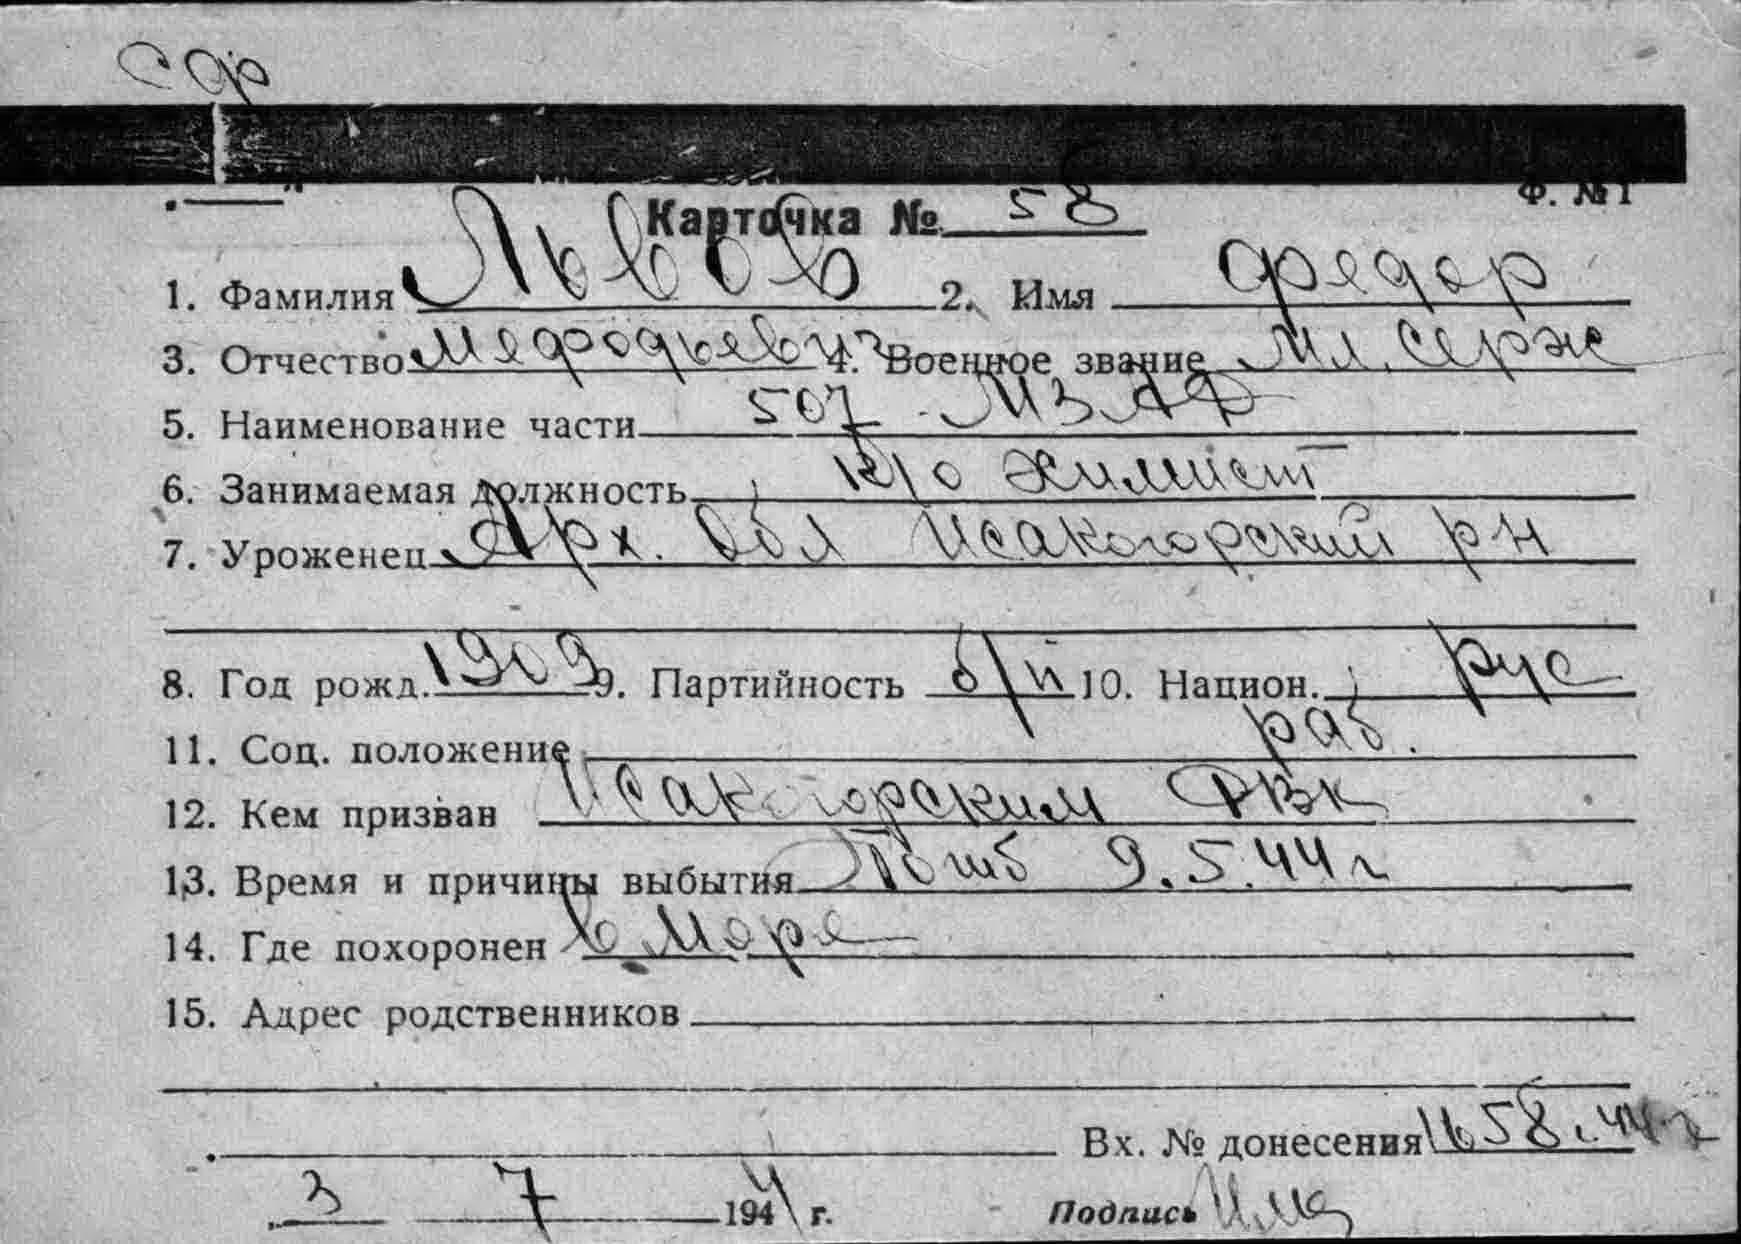 сф
Ф. № 1
Карточка № 58
1. Фамилия Львов 2. Имя Федор
3. Отчество Мефодьевич 4. Военное звание Мл. Серж
5. Наименование части 507 МЗАД
6. Занимаемая должность к/о химист
7. Уроженец Арх. Обл Исакогорский р-н
8. Год рожд. 1909 9. Партийность б/п 10. Национ. рус
11. Соц. положение раб.
12. Кем призван Исакогорским РВК
13. Время и причины выбытия Погиб 9.5.44 г
14. Где похоронен в море
15. Адрес родственников
Вх. № донесения 1658с.44 г
3 7 1944 г. Подпись